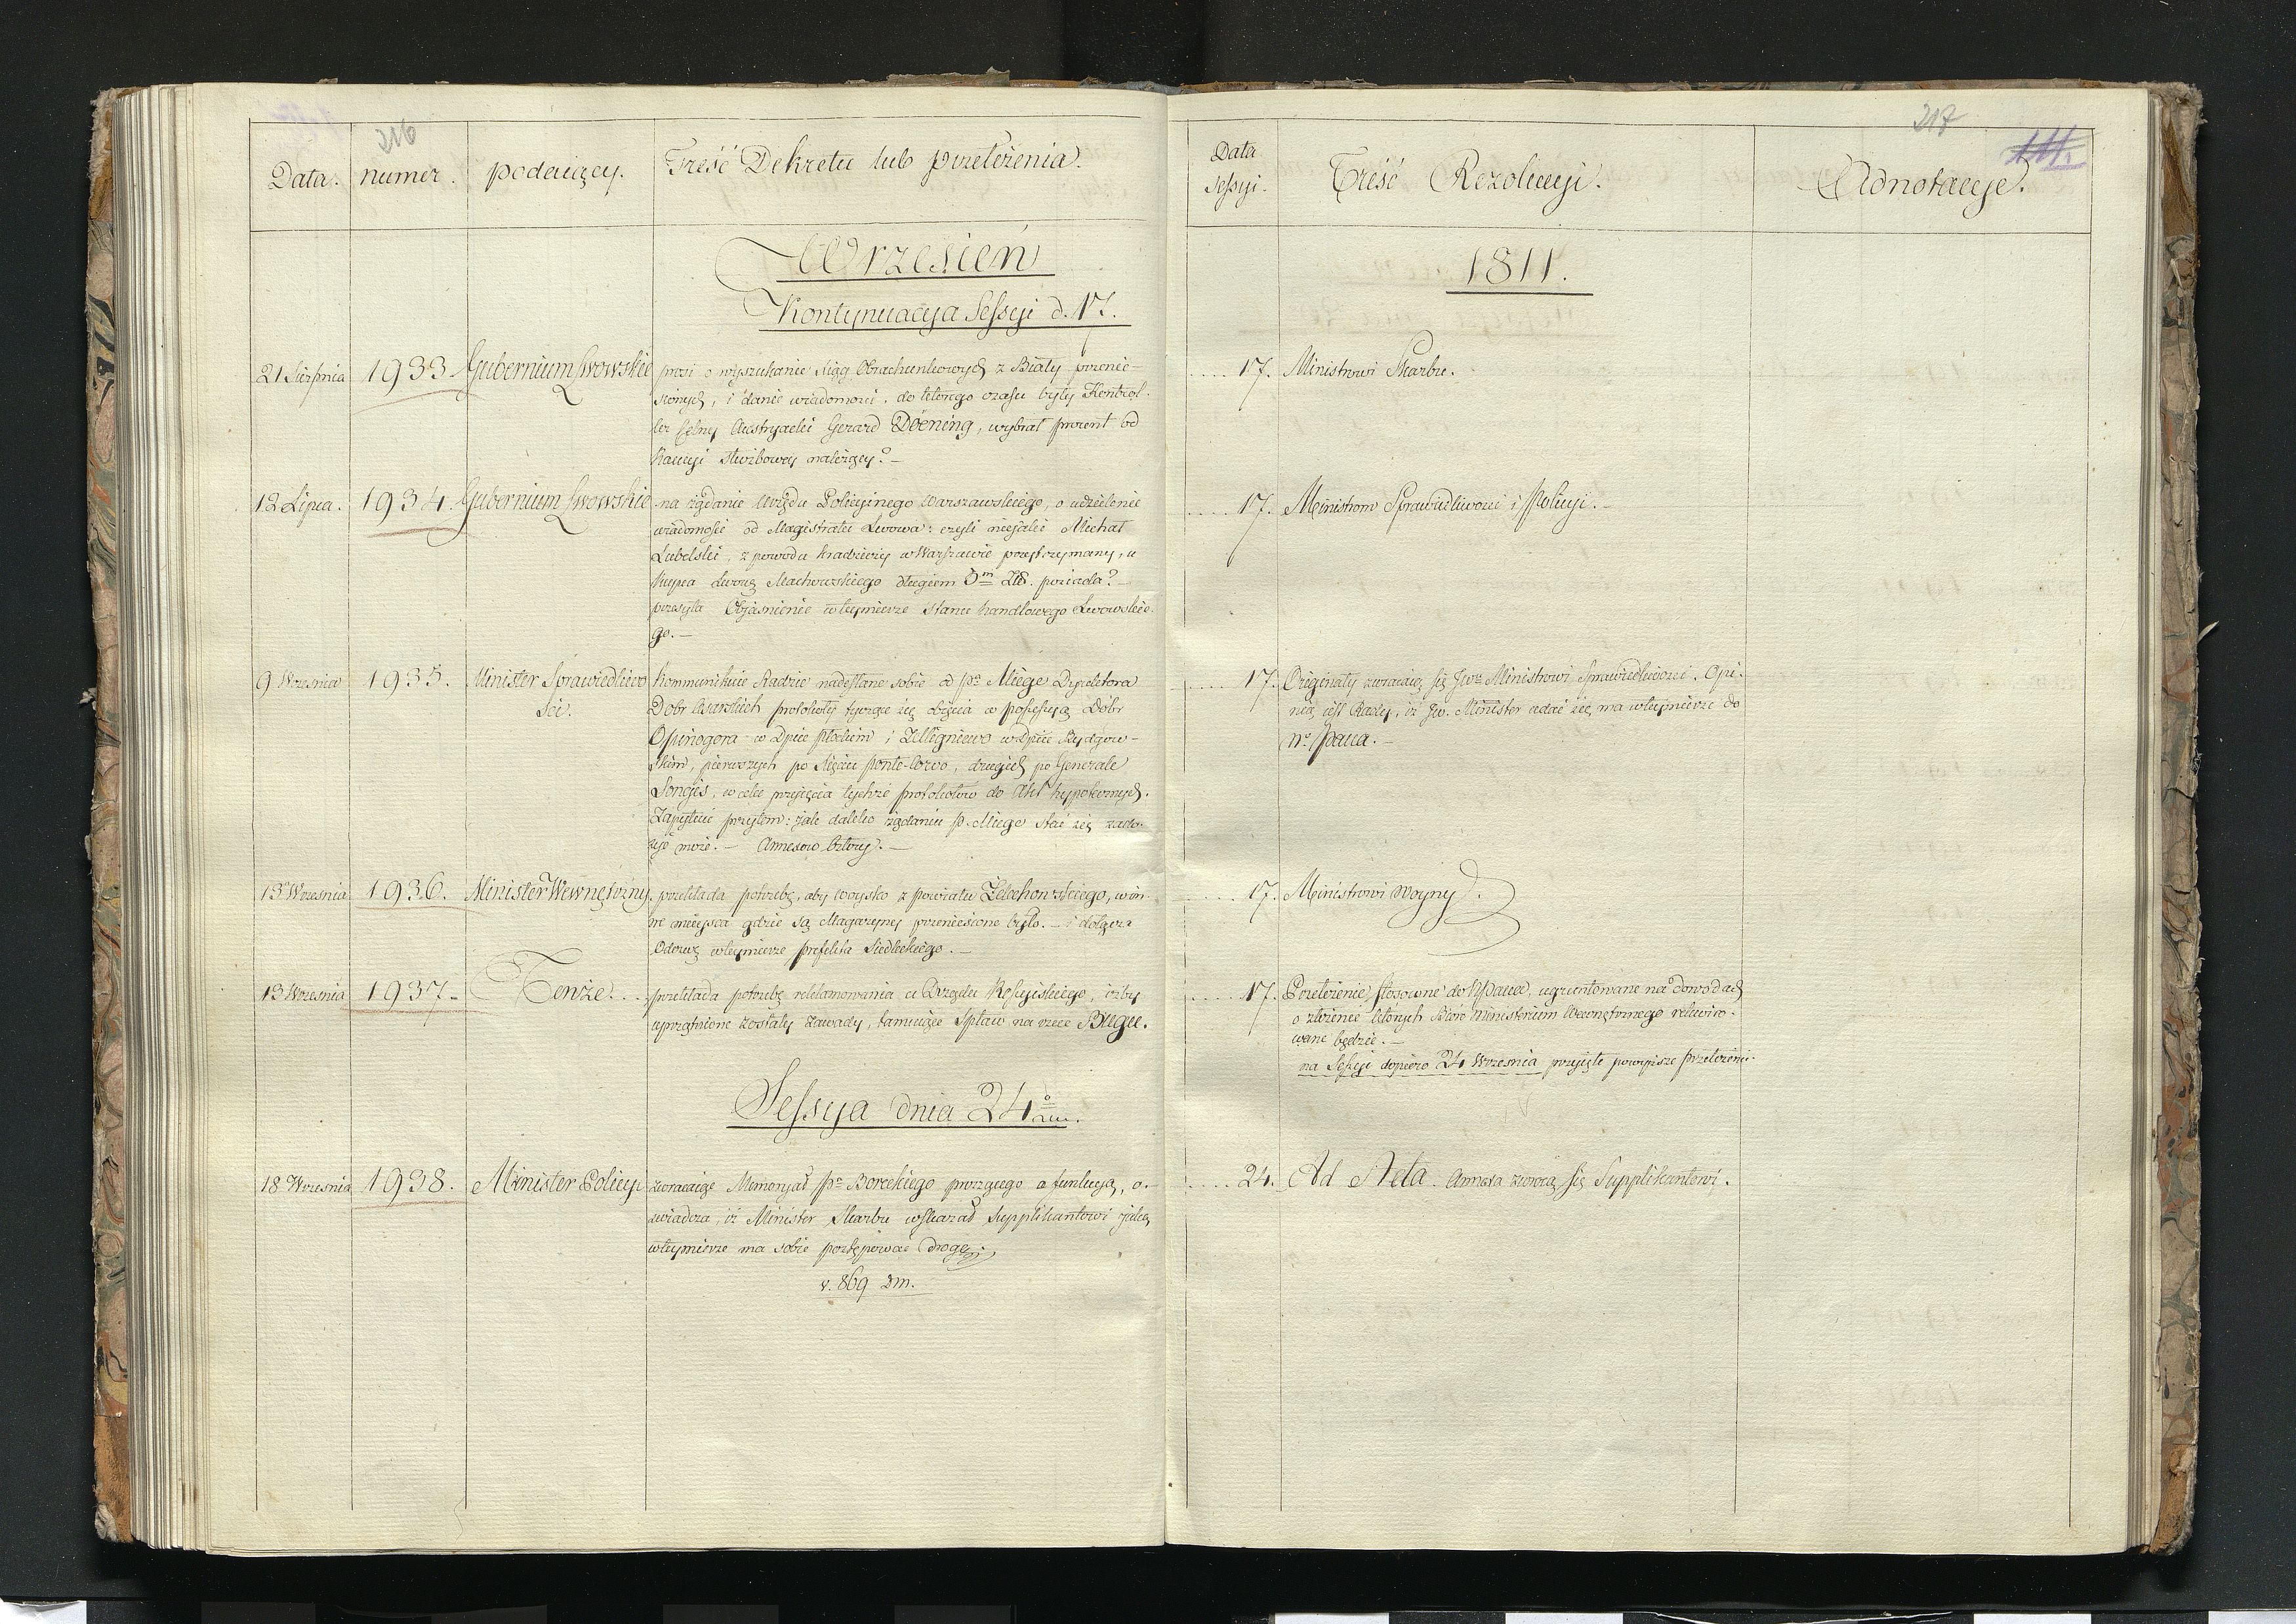 216
Data. numer. podaiący. Treść Dekretu lub przełożenia.
Wrzesień
Kontynuacya Sessyi d. 17.
21 Sierpnia 1933 Gubernium Lwowskie prosi o wyszukanie xiąg Obrachunkowych z Biały przenie-
sionych, i danie wiadomości, do którego czasu były Kontrol-
ler Celny Austryacki Gerard Döening, wybrał procent od
Kaucyi służbowey należący? —
12 Lipca. 1934. Gubernium Lwowskie na żądanie Urzędu Policyinego Warszawskiego, o udzielenie
wiadomości od Magistratu Lwowa: czyli niejaki Michał
Lubelski, z powodu kradzieży w Warszawie przytrzymany, u
Kupca Machowskiego długiem 3m Zł. posiada? —
przesyła Objaśnienie w teymierze stanu handlowego Lwowskie-
go. —
9 Września 1935. Minister Sprawiedliwo
ści. kommunikuie Radzie nadesłane sobie od Pa Miége Dyrektora
Dóbr Cesarskich protokoły tyczące się objęcia w possessyą Dóbr
Opinogora w Dpcie Płockim i w Dpcie Bydgow-
skim, pierwszych po Xięciu Ponte-Corvo, drugich po Generale
Songis, w celu przyjęcia tychże protokołów do Akt hypotecznych.
Zapytuie przytem: jak daleko żądaniu P. Miége stać się zado-
syć może. — Annexow cztery. —
13 Września 1936. Minister Wewnętrzny. przekłada potrzebę, aby woysko z powiatu Żelechowskiego, w in-
ne mieysca gdzie są Magazyny przeniesione było. — i dołącza
Odezwę w teymierze prefekta Siedleckiego. —
13 Września 1937. Tenże. przekłada potrzebę reklamowania u Rządu Rossyiskiego, iżby
uprzątnione zostały zawady, tamuiące Spław na rzece Bugu.
Sessya dnia 24
18 Września 1938. Minister Policyi zwracaiąc Memoryał Pa Boreckiego proszącego o funkcyą, o-
świadcza, iż Minister Skarbu wskazał Supplikantowi jaką
w teymierze ma sobie postępować drogę
v. 869 dm.
217
Data
Sessyi. Treść Rezolucyi. Adnotacye.
1811.
17. Ministrowi Skarbu.
17. Ministrom Sprawiedliwości i Policyi. —
17. Originały zwracaią się Jwu Ministrowi Sprawiedliwości. Opi-
nią jest Rady, iż Jw. Minister udać się ma w teymierze do
No Pana. —
17. Ministrowi Woyny.
17. Przełożenie stosowne do NPana, ugruntowane na dowodach
o złożenie których Biuro Ministerium Wewnętrznego rekwiro-
wane będzie. —
na Sessyi dopiero 24 Września przyięte powyższe przełożenie.
24. Ad Acta. Annexa zwrócą się Supplikantowi.